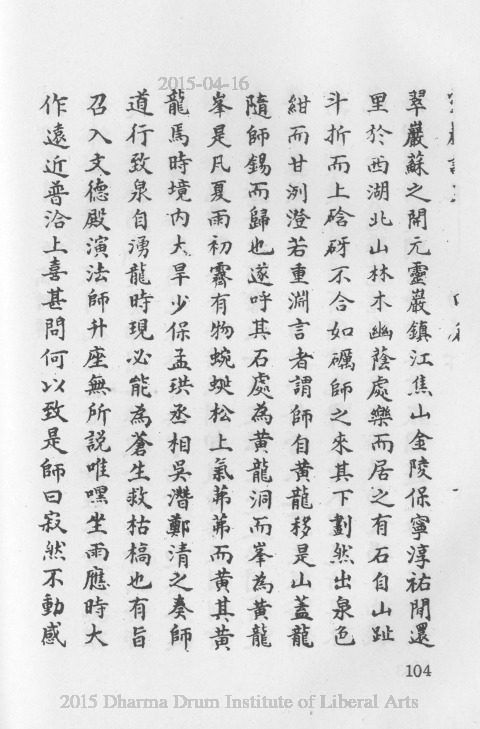 2015-04-16
翠巖蘇之開元靈巖鎮江焦山金陵保寧淳祐間還
里於西湖北山林木幽蔭處樂而居之有石自山趾
斗折而上硲砑不合如礪師之來其下劃然出泉色
紺而甘洌澄若重淵言者謂師自黄龍移是山蓋龍
隨師錫而歸也遂呼其石處為黄龍洞而峯為黄龍
峯是凡夏雨初霽有物蜿蜒松上氣茀茀而黄其黄
龍焉時境內大旱少保孟珙丞相吳潛鄭清之奏師
道行致泉自湧龍時現必能為蒼生救枯槁也有旨
召入文德殿演法師升座無所説唯嘿坐雨應時大
作遠近普洽上喜甚問何以致是師曰寂然不動感
104
2015 Dharma Drum Institute of Liberal Arts